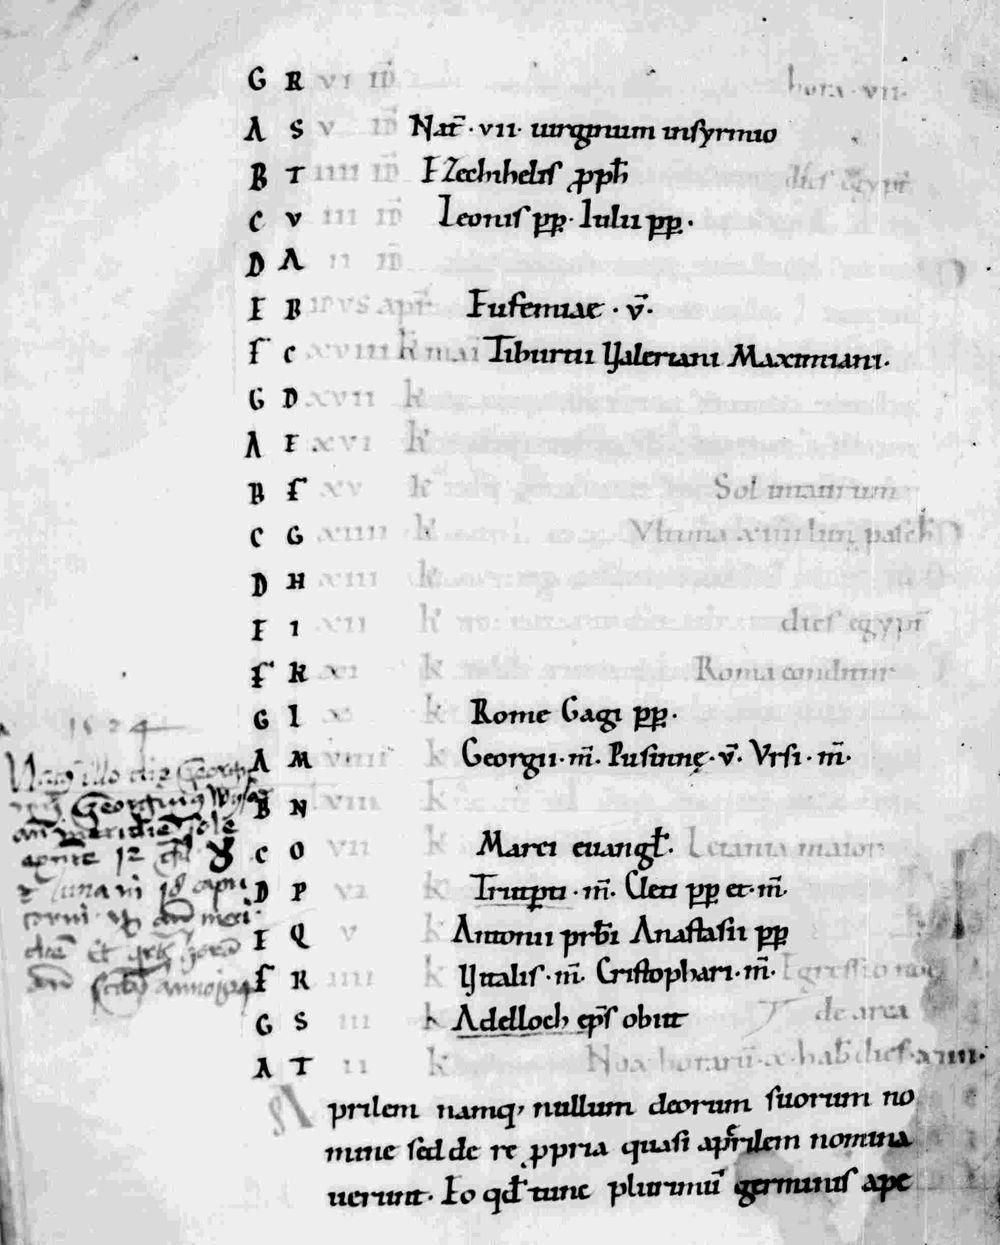 G R VI ID hora · vii ·
A S V ID Nat̄ · vii · uirginum in syrmio
B T IIII ID Iezechihelis ꝓph̄ dies egypt̄
C V III ID Leonis pp̄ · Iulii pp̄ ·
D A II ID
E B IDVS apr̄ Eufemiae · v̄ ·
F C XVIII k mai Tiburtii Valeriani Maximiani ·
G D XVII k
A E XVI k
B F XV k Sol in taurum
C G XIIII k Vltima xiiii lun pasch
D H XIII k
E I XII k dies egypt̄
F K XI k Roma conditur
G L X k Rome Gagi pp̄ ·
A M VIIII k Georgii · m̄ · Pusinnę · v̄ · Vrsi · m̄ ·
B N VIII k
C O VII k Marci euangl̄ · Letania maior
D P VI k · m̄ · Cleti pp̄ et · m̄
E Q V k Antonii prb̄i Anastasii pp̄
F R IIII k Vitalis · m̄ · Cristophari · m̄ · Egressio noe
G S III k Adelloch ep̄s obiit de arca
A T II k Nox horarū · x · hab̄ dies · xiiii ·
Aprilem namq; nullum deorum suorum no
mine sed de re ꝓpria quasi aperilem nomina
uerunt · Eo qđ tunc plurimū germinis ape
1524
georgius
ante meridie sole
aprilis 12
luna in 18 capri
corni meri
die et
anno